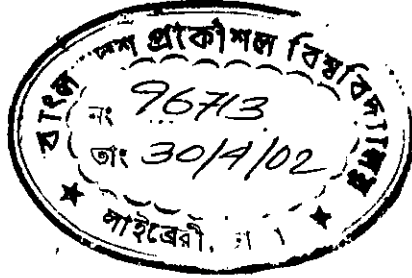 প্রকৌশল বিশ্ববিদ্যালয়
নং 96713
তাং 30/4/02
লাইব্রেরী,